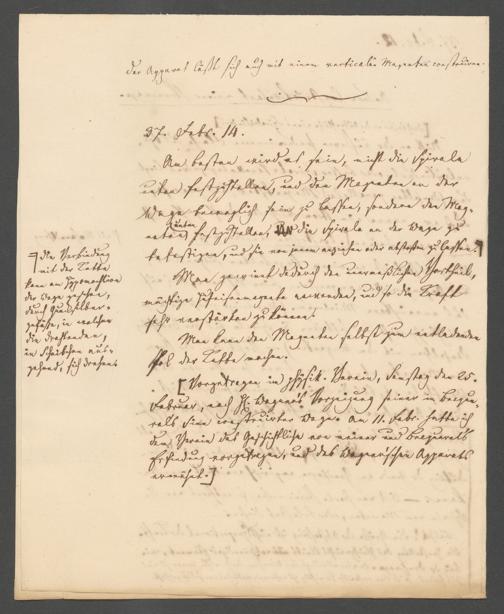 Der Apparat läßt sich auch mit einem verticalen Magneten construiren.
27. Febr. 14.
Am besten wird es sein, nicht die Spirale
unten festzustellen, und den Magneten an der
Wage beweglich sein zu lassen, sondern den Mag-
neten unten festzustellen, die Spirale an der Wage zu
befestigen, und sie von jenem anziehen oder abstoßen zu lassen.
Man gewinnt dadurch den unermeßlichen Vortheil,
mächtige Hufeisenmagnete anwenden, und so die Kraft
sehr verstärken zu können.
Man kann den Magneten selbst zum entladenden
Pol der Kette machen.
[Vorgetragen im physik. Verein, Dienstag den 25.
Februar, nach Hn Wagner's Vorzeigung seiner in Becque-
rels Sinn construirten Wage. Am 11. Febr. hatte ich
dem Verein das Geschichtliche von meiner und Becquerels
Erfindung vorgetragen, und des Wagnerischen Apparats
erwähnt.]
die Verbindung
mit der Kette
kann am Hypomochlion
der Wage geschehen,
durch Quecksilber-
gefäße, in welchen
die Drahtenden,
in Scheibchen aus-
gehend, sich drehen.